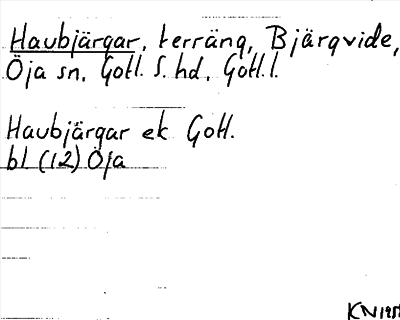 Haubjärgar, terräng, Bjärgvide,
Öja sn, Gotl. S. hd, Gotl. l.
Haubjärgar ek Gotl.
bl. (12) Öja